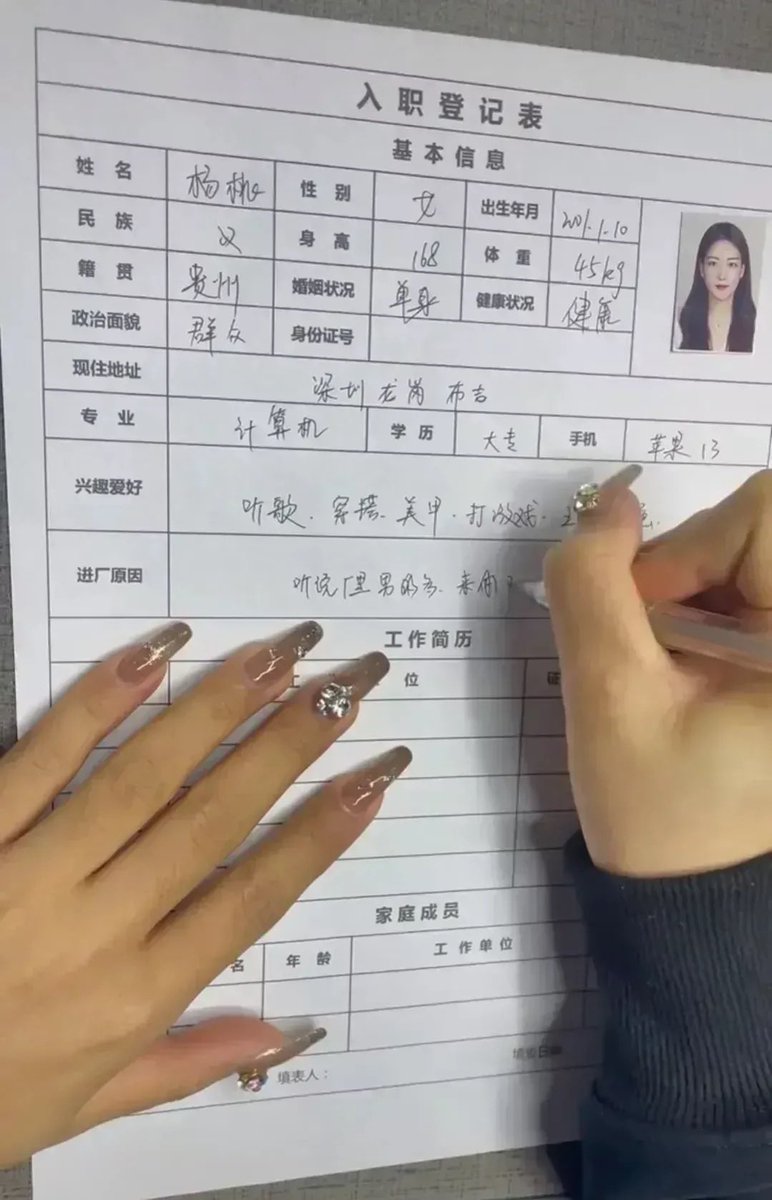 入职登记表
基本信息
姓名 杨桃 性别 女 出生年月 201.1.10
民族 汉 身高 168 体重 45kg
籍贯 贵州 婚姻状况 单身 健康状况 健康
政治面貌 群众 身份证号
现住地址 深圳 龙岗 布吉
专业 计算机 学历 大专 手机 苹果 13
兴趣爱好 听歌. 穿搭. 美甲. 打游戏.
进厂原因 听说厂里男的多. 来
工作简历
位
家庭成员
名 年龄 工作单位
填表人：